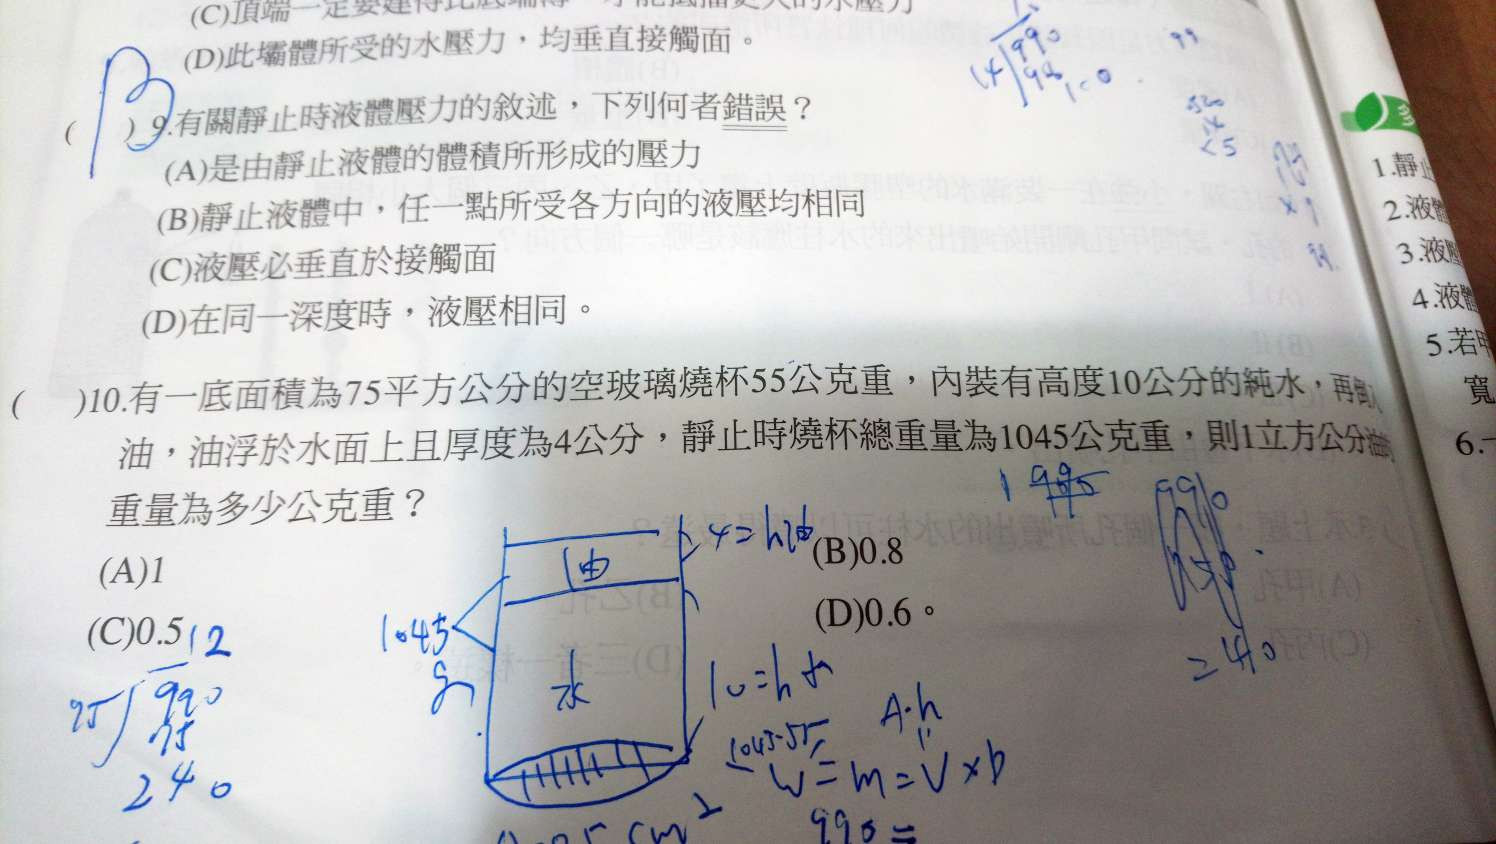 (D)此壩體所受的水壓力，均垂直接觸面。
( )9.有關靜止時液體壓力的敘述，下列何者錯誤？
(A)是由靜止液體的體積所形成的壓力
(B)靜止液體中，任一點所受各方向的液壓均相同
(C)液壓必垂直於接觸面
(D)在同一深度時，液壓相同。
( )10.有一底面積為75平方公分的空玻璃燒杯55公克重，內裝有高度10公分的純水，再倒入
油，油浮於水面上且厚度為4公分，靜止時燒杯總重量為1045公克重，則1立方公分油的
重量為多少公克重？
(A)1
(B)0.8
(C)0.5
(D)0.6。
油
4=h油
1045
g
水
10=h水
12
990
75
240
1045-55
A·h
W=m=V×D
990=
=40
1.靜止
2.液體
3.液壓
4.液體
5.若甲
寬
6.一